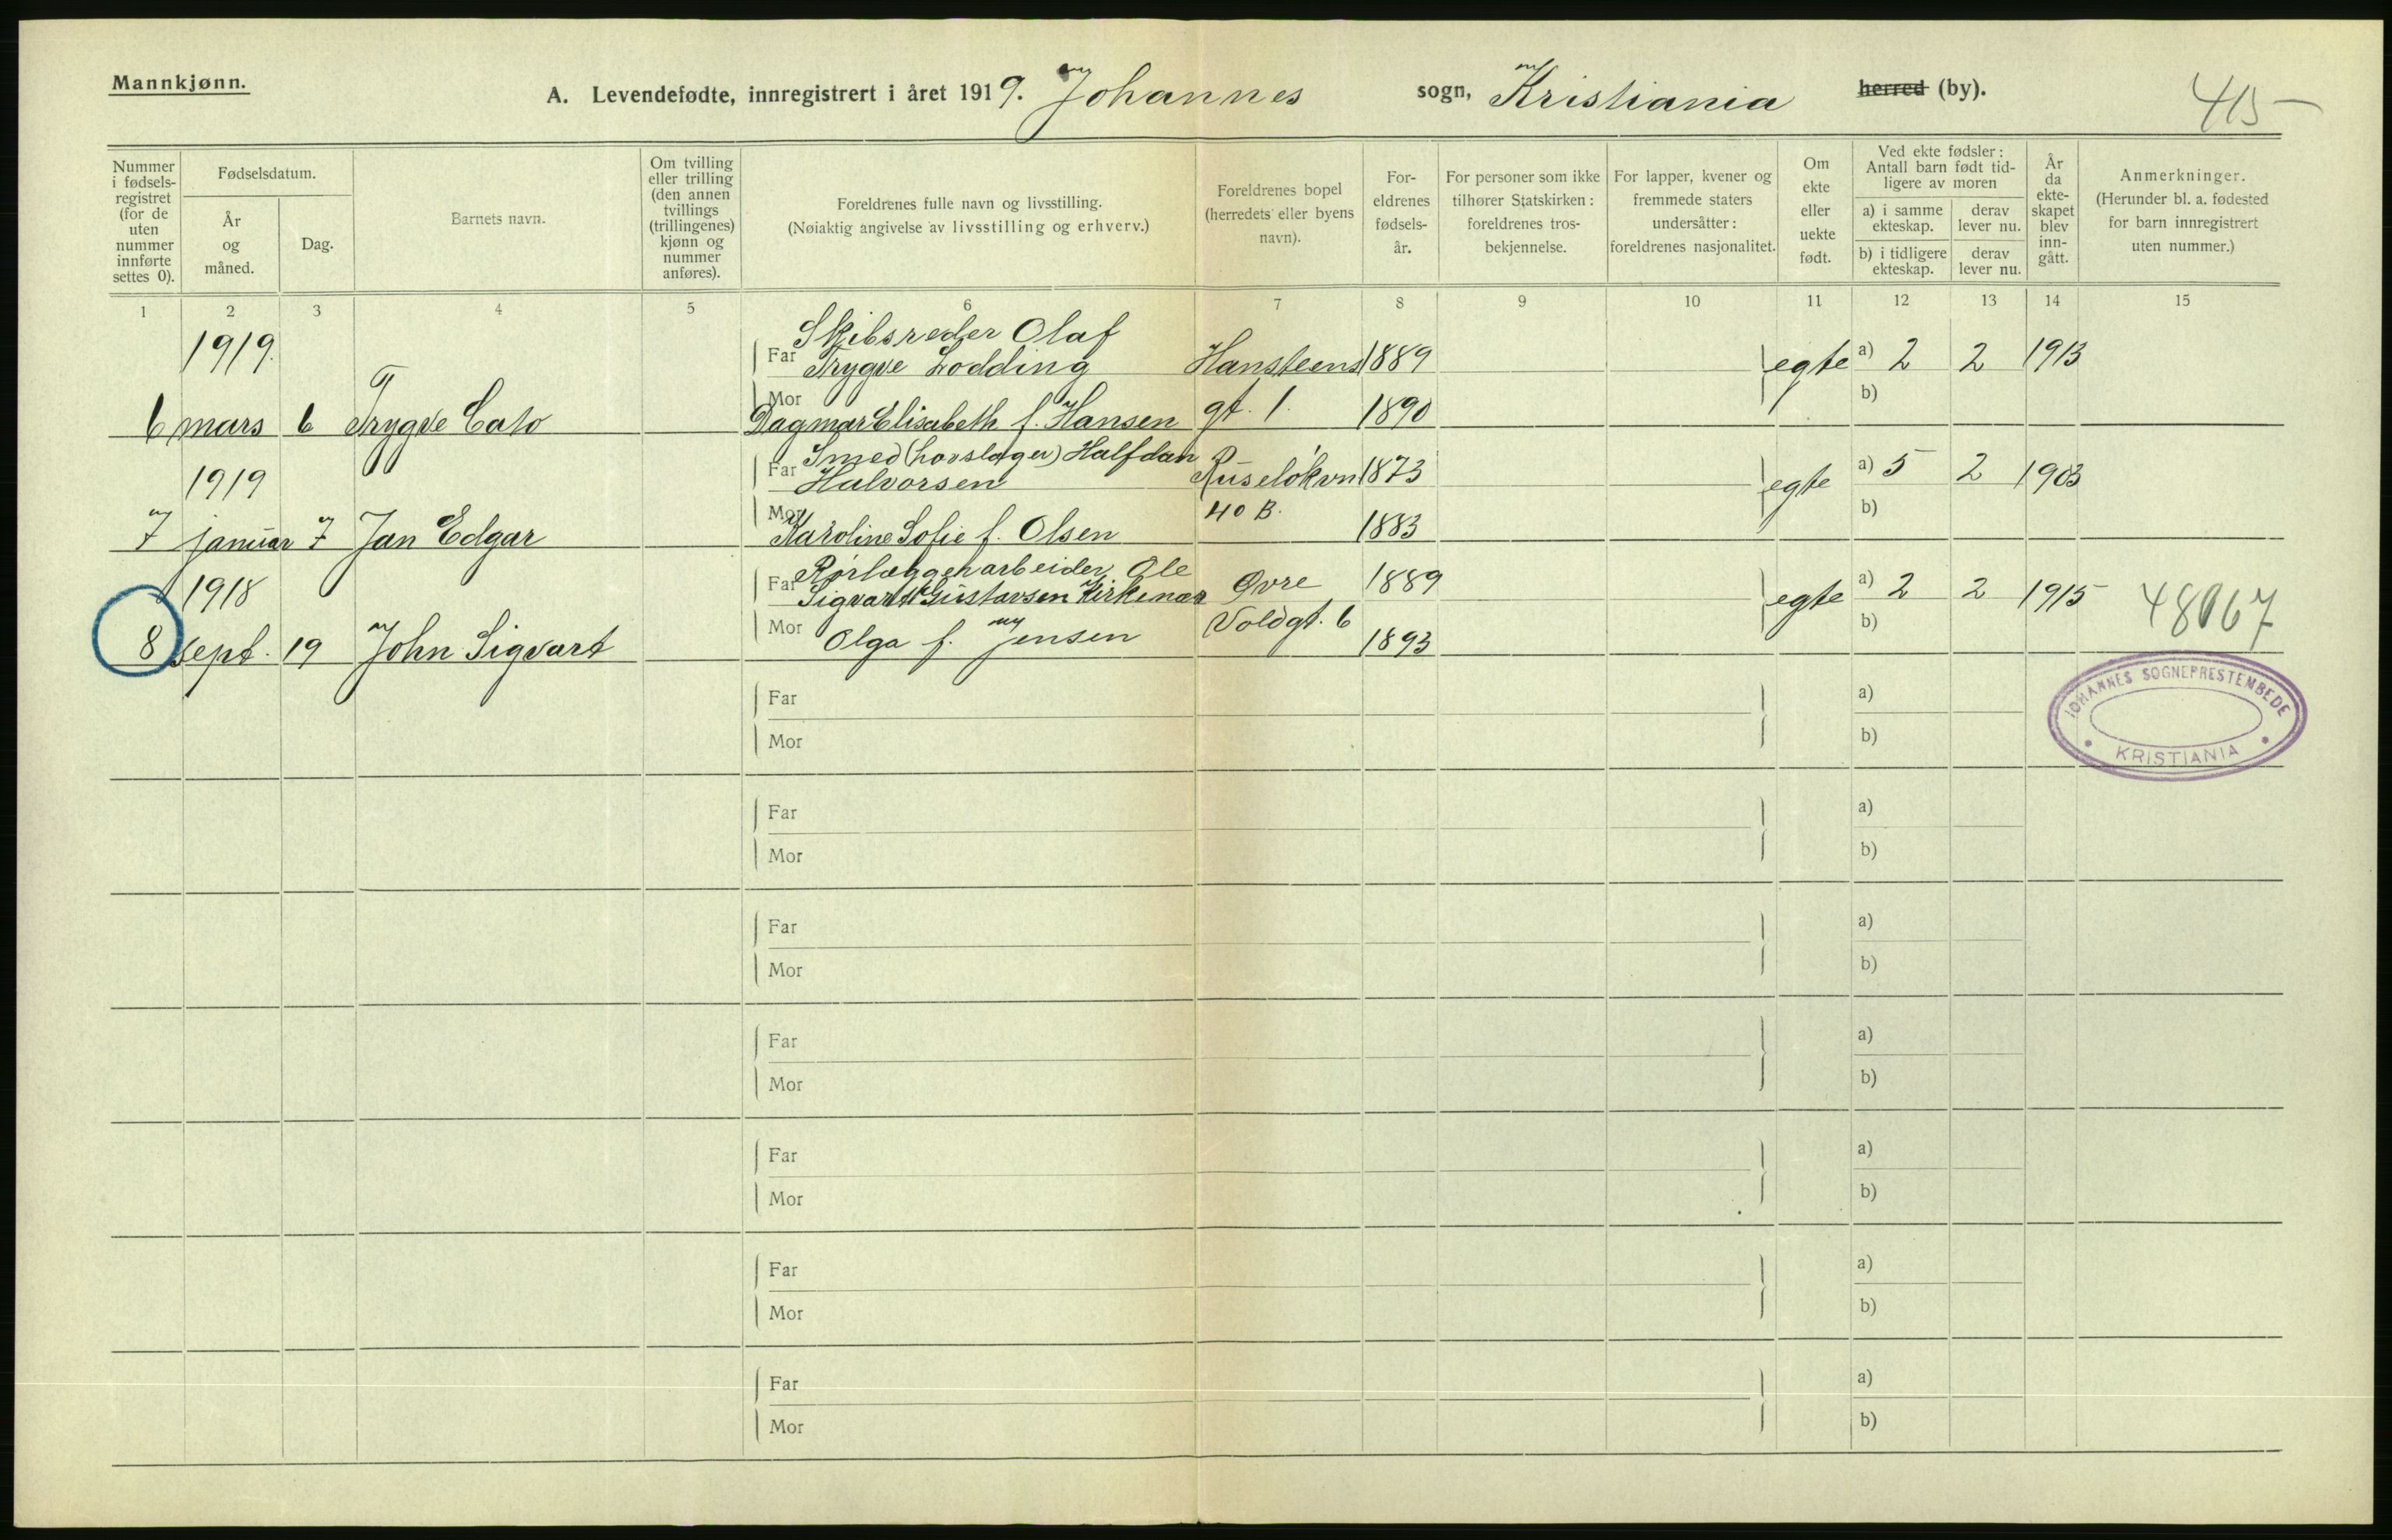 Mannkjønn.
A. Levendefødte, innregistrert i året 1919. Johannes sogn, Kristiania herred (by).
415
Nummer i fødselsregistret (for de uten nummer innførte settes 0).
Fødselsdatum.
År og måned.
Dag.
Barnets navn.
Om tvilling eller trilling (den annen tvillings (trillingenes) kjønn og nummer anføres).
Foreldrenes fulle navn og livsstilling.
(Nøiaktig angivelse av livsstilling og erhverv.)
Foreldrenes bopel (herredets eller byens navn).
Foreldrenes fødselsår.
For personer som ikke tilhører Statskirken: foreldrenes trosbekjennelse.
For lapper, kvener og fremmede staters undersåtter: foreldrenes nasjonalitet.
Om ekte eller uekte født.
Ved ekte fødsler: Antall barn født tidligere av moren
a) i samme ekteskap. derav lever nu.
b) i tidligere ekteskap. derav lever nu.
År da ekteskapet blev inngått.
Anmerkninger.
(Herunder bl. a. fødested for barn innregistrert uten nummer.)
1 2 3 4 5 6 7 8 9 10 11 12 13 14 15
1919. Far Skibsreder Olaf
Trygve Lodding Hansteens 1889 egte a) 2 2 1913
6 mars 6 Trygve Cato Mor Dagmar Elisabeth f. Hansen gt. 1. 1890 b)
1919 Far Smed (hovslager) Halfdan
Halvorsen Ruseløkvn 1873 egte a) 5 2 1903
7 januar 7 Jan Edgar Mor Karoline Sofie f. Olsen 40 B. 1883 b)
1918 Far Rørlæggerarbeider Ole
Sigvard Gustavsen Kirkenær Øvre 1889 egte a) 2 2 1915 48067
8 sept. 19 John Sigvart Mor Olga f. Jensen Voldgt. 6 1893 b)
JOHANNES SOGNEPRESTEMBEDE
KRISTIANIA
Far a)
Mor b)
Far a)
Mor b)
Far a)
Mor b)
Far a)
Mor b)
Far a)
Mor b)
Far a)
Mor b)
Far a)
Mor b)